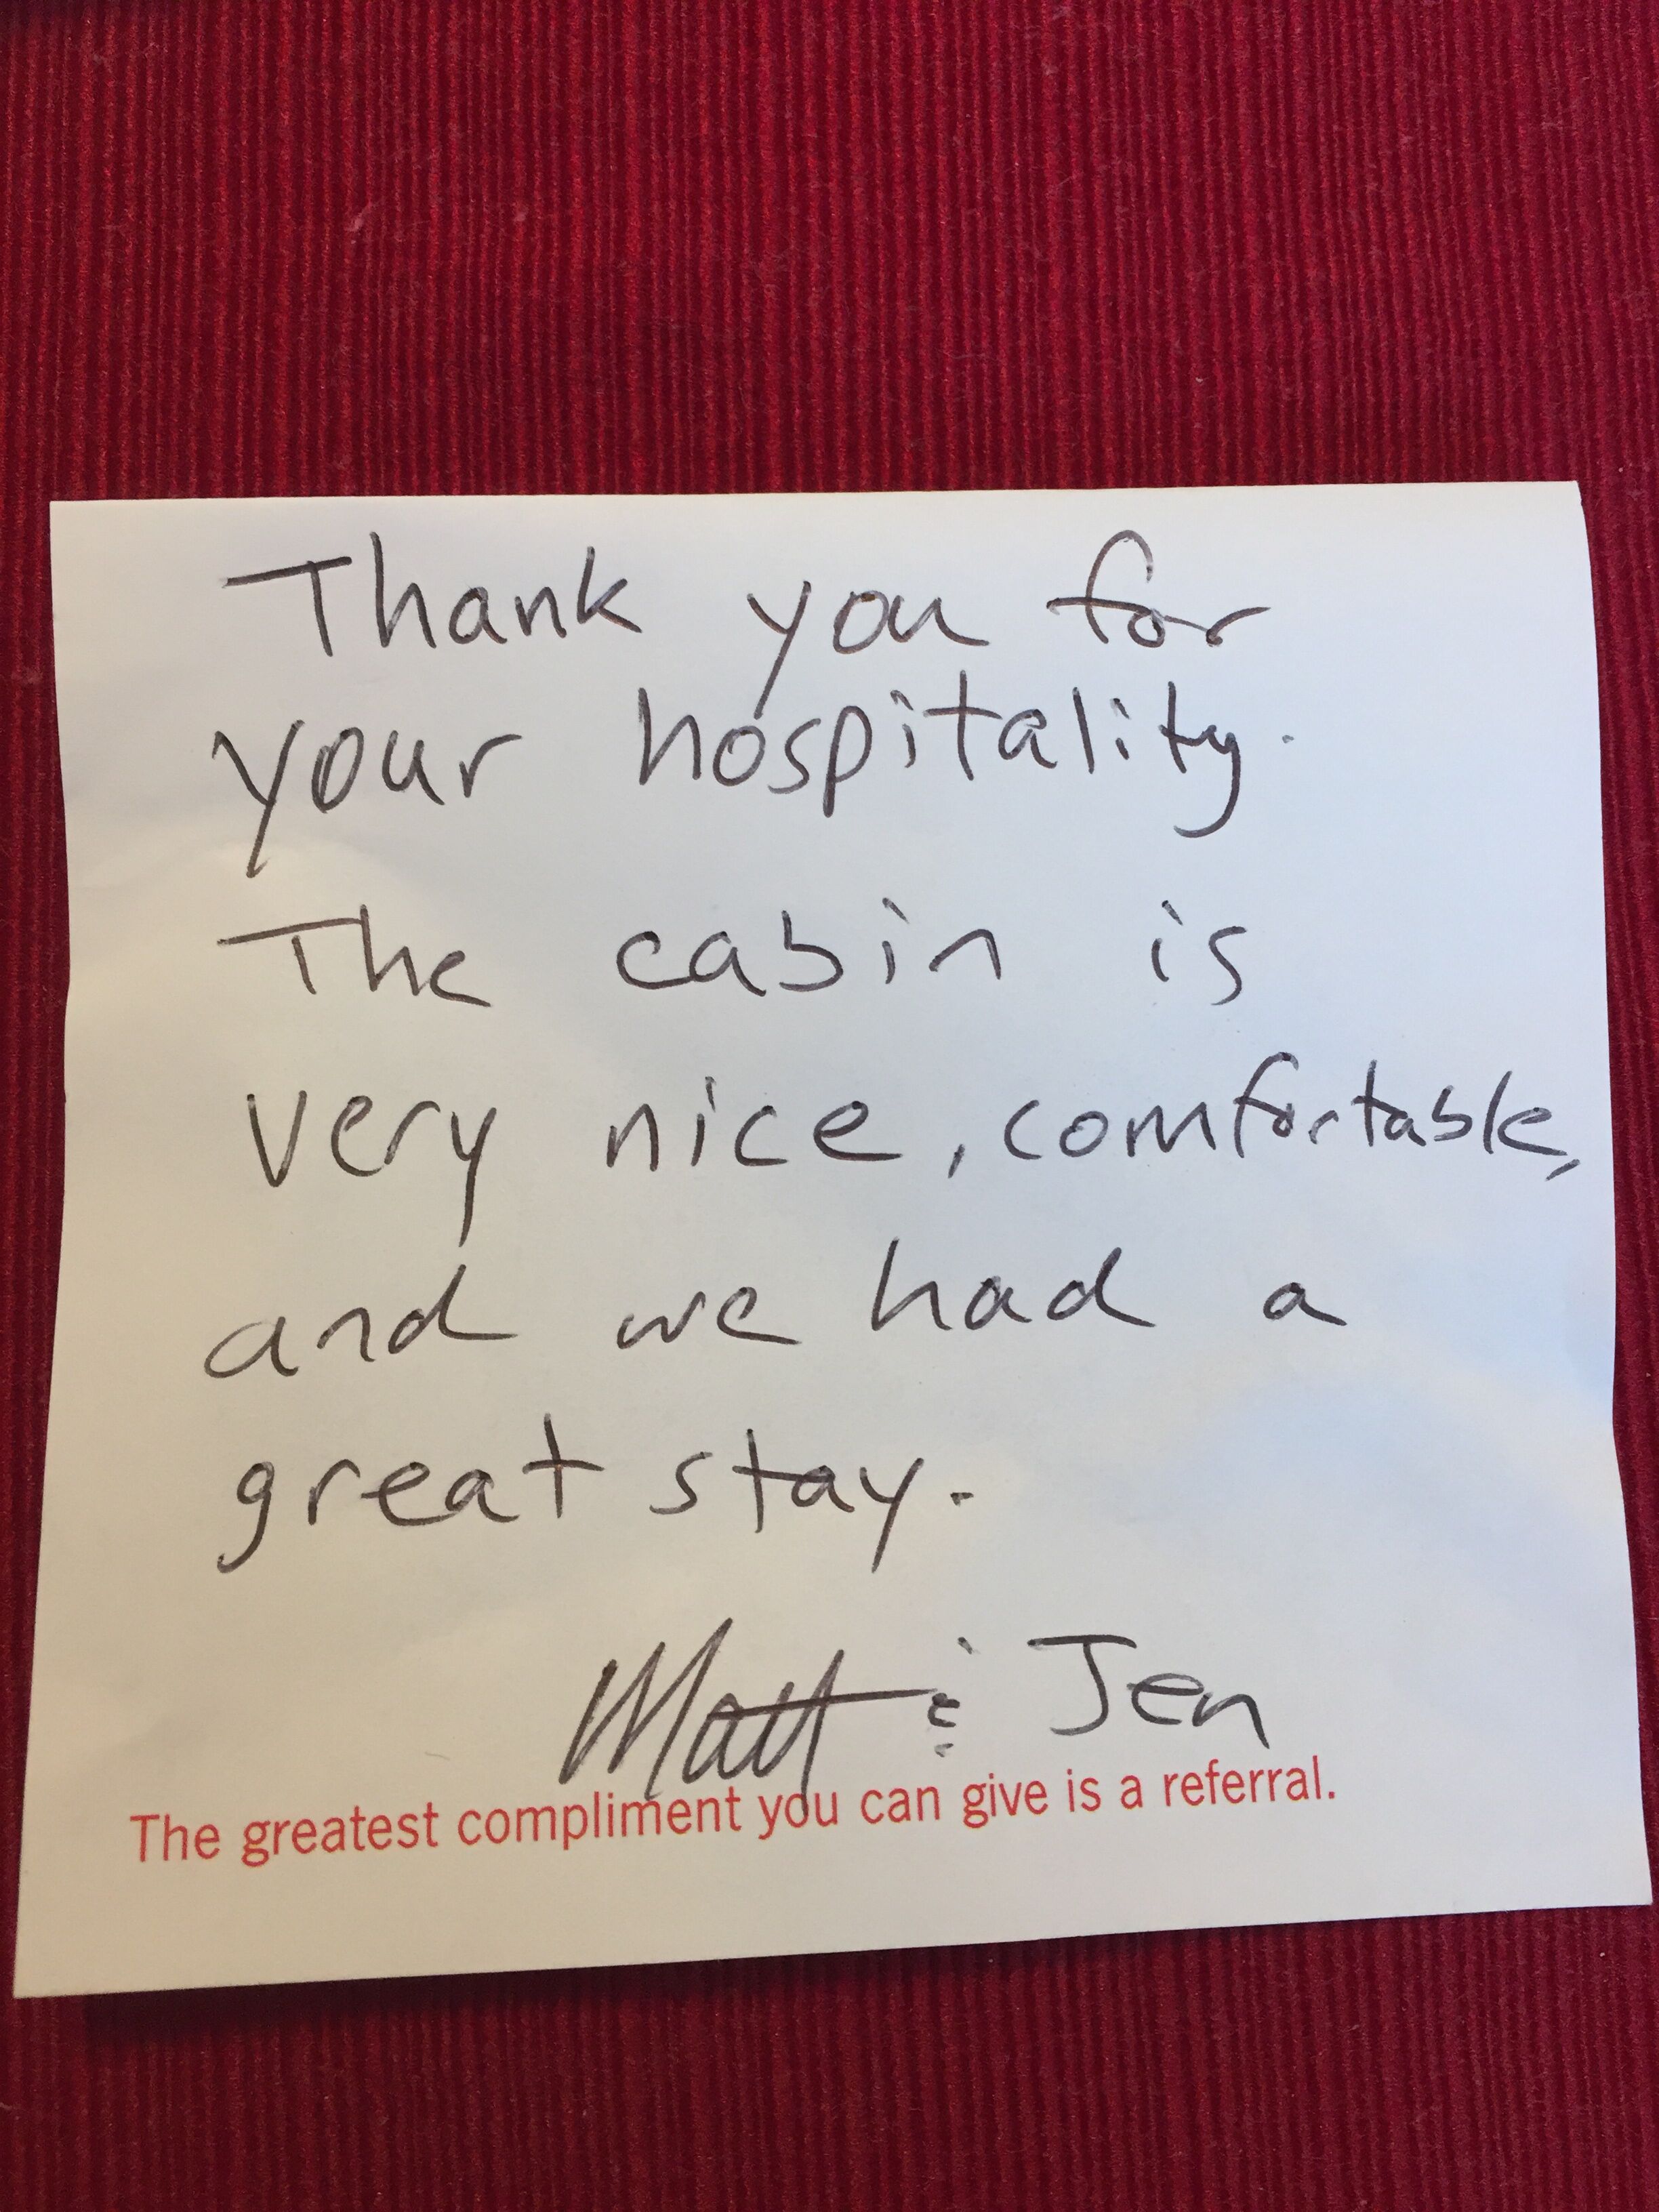 Thank you for
your hospitality.
The cabin is
very nice, comfortable,
and we had a
great stay.
Matt & Jen
The greatest compliment you can give is a referral.